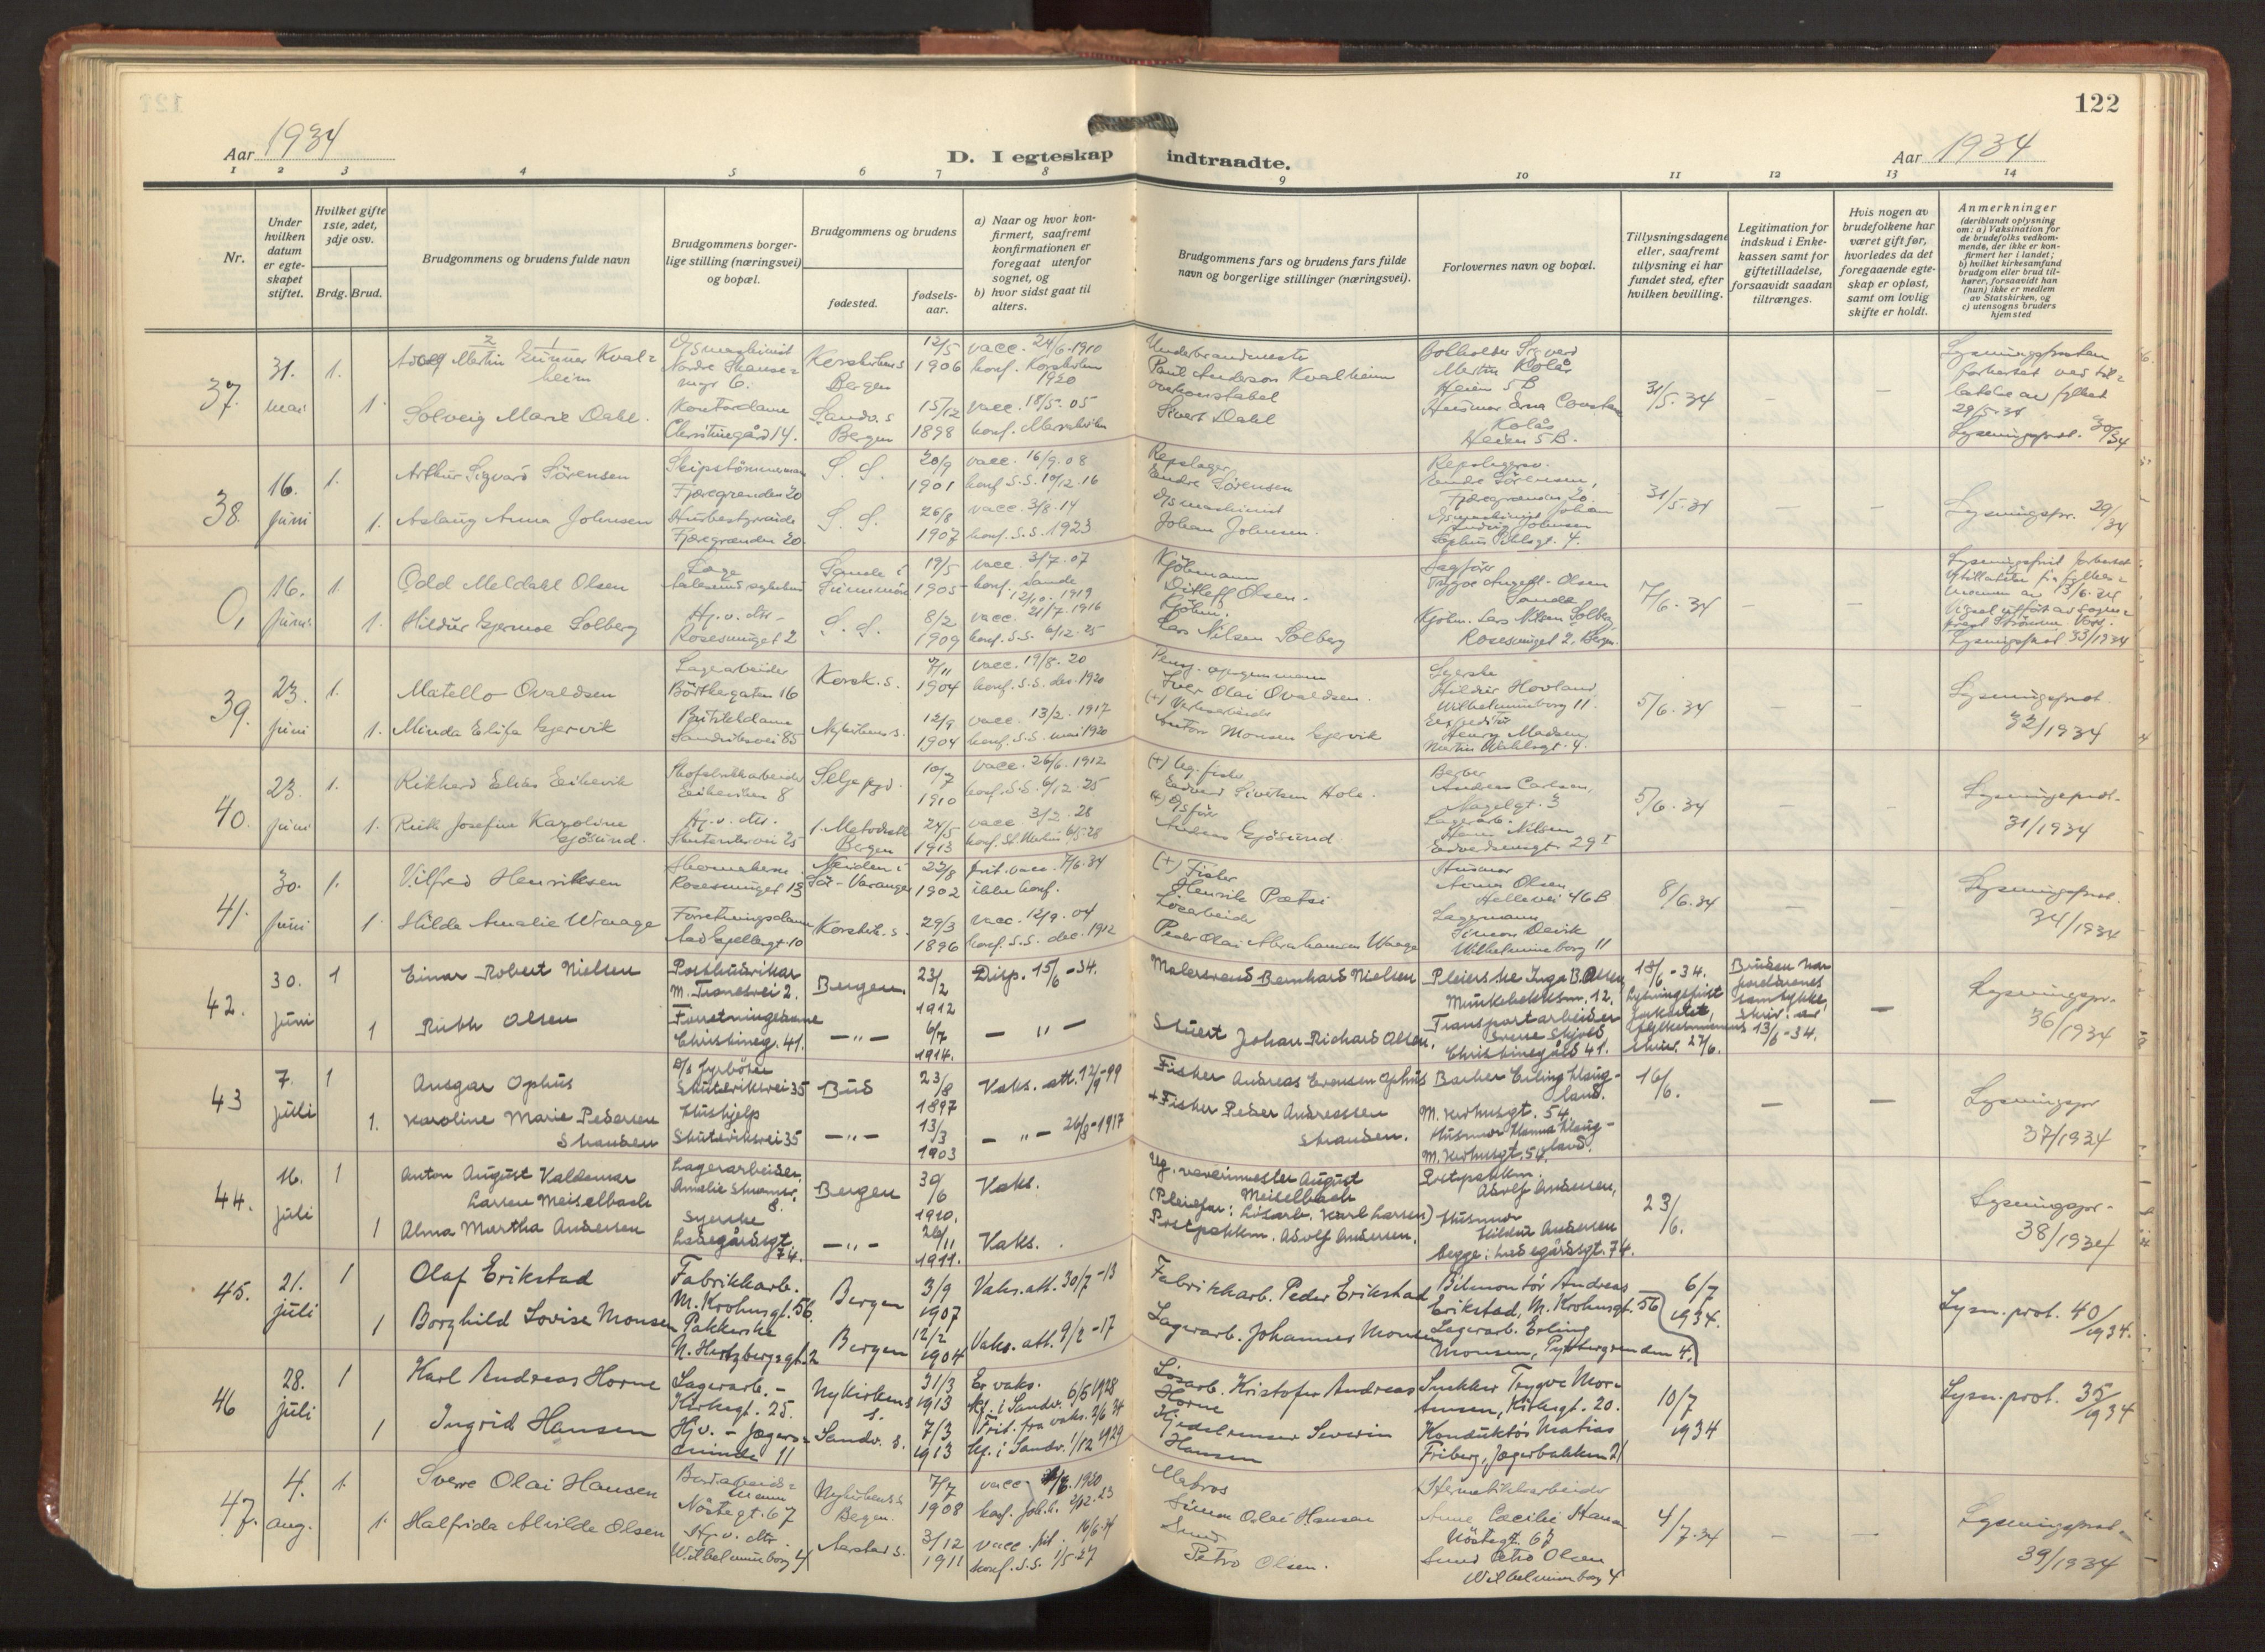 122
Aar 1934
D. I egteskap indtraadte.
Aar 1934
1 2 3 4 5 6 7 8 9 10 11 12 13 14
Nr.
Under hvilken datum er egteskapet stiftet.
Hvilket gifte 1ste, 2det, 3dje osv.
Brdg. Brud.
Brudgommens og brudens fulde navn
Brudgommens borgerlige stilling (næringsvei) og bopæl.
Brudgommens og brudens
fødested.
fødselsaar.
a) Naar og hvor konfirmert, saafremt konfirmationen er foregaat utenfor sognet, og
b) hvor sidst gaat til alters.
Brudgommens fars og brudens fars fulde navn og borgerlige stillinger (næringsvei).
Forlovernes navn og bopæl.
Tillysningsdagene eller, saafremt tillysning ei har fundet sted, efter hvilken bevilling.
Legitimation for indskud i Enkekassen samt for giftetilladelse, forsaavidt saadan tiltrænges.
Hvis nogen av brudefolkene har været gift før, hvorledes da det foregaaende egteskap er opløst, samt om lovlig skifte er holdt.
Anmerkninger
(deriblandt oplysning om: a) Vaksination for de brudefolks vedkommende, der ikke er konfirmert her i landet; b) hvilket kirkesamfund brudgom eller brud tilhører, forsaavidt han (hun) ikke er medlem av Statskirken, og c) utensogns bruders hjemsted
37. 31. mai 1. Martin Gunnar Kvalheim
Nordre Skansemyr 6. Korskirkens Bergen 12/5 1906 vacc. 24/6.1910 konf. Korskirken 1920
Underbrandmester Paul Anderson Kvalheim
Martin Kolås Heien 5B
31/5.34
1. Solveig Marie Dahl. Kontordame Christinegård 14. Sandv. s Bergen 15/12 1898 vacc. 18/5.05
overkonstabel Sivert Dahl
Kolås Heien 5B.
38. 16. juni 1. Arthur Sigvard Sörensen
Skipstömmermann Fjæregrenden 20 S. S. 20/9 1901 vacc. 16/9.08 konf. S.S. 10/12.16
Repslager Endre Sörensen
31/5.34
1. Aslaug Anna Johnsen Husbestyrerinde Fjæregrenden 20 S. S. 26/8 1907 vacc. 3/8.14 konf. S.S. 1923
Johan Johnsen.
0, 16. juni 1. Odd Meldahl Olsen
Sande i Sunnmöre 19/5 1905 vacc. 3/7.07 konf. Sande 12/10.1919
Kjöbmann Ditleff Olsen.
7/6.34
1. Hildur Gjermoe Solberg Hj.v. dtr. Rosesmuget 2 S. S. 8/2 1909 vacc. 21/7.1916 konf. S.S. 6/12.25
Kjöbm. Lars Nilsen Solberg
Kjöbm. Lars Nilsen Solberg Rosesmuget 2, Bergen.
Lysningsprot 33/1934
39. 23. juni 1. Matello Ovaldsen
Lagerarbeider Böttkergaten 16 Korsk. s. 7/11 1904 vacc. 19/8.20 konf. S.S. des. 1920
Iver Olai Ovaldsen.
Syerske Hildur Hovland, Wilhelmineborg 11.
5/6.34
Lysningsprot. 32/1934
1. Minda Elisa Gjervik Sandviksvei 85 Nykirkens. 12/9 1904 vacc. 13/2.1917 konf. S.S. mai 1920
Anton Monsen Gjervik
Henry Madsen, Martin Wahlsgt. 4.
40. 23. juni 1. Rikhard Elias Eikevik
Skofabrikarbeider 8 Selje pgd. 10/7 1910 vacc. 26/6.1912 konf. S.S. 6/12.25
Edvard Sivertsen Hole.
Berber Andreas Carlsen, Nagelgt. 3
5/6.34
Lysningsprot. 31/1934
1. Ruth Josefine Karoline Gjösund. Hj.v. dtr. Skuteviksvei 25 Bergen 24/5 1913 vacc. 3/2.28
Andreas Gjösund.
Lagerarb. Hans Nilsen
41. 30. juni 1. Vilfred Henriksen
Skomakerm. Rosesmuget 13 Neiden i Sör-Varanger 22/8 1902 frit. vacc. 7/6.34 ikke konf.
(+) Fisker Henrik Pætsi
Husmor Anna Olsen Hellevei 46B
8/6.34
Lysningsprot. 34/1934
1. Hilda Amalie Waage Korskirk. s. 29/3 1896 vacc. 12/9.04 konf. S.S. dec. 1912
Lösarbeider Peder Olai Abrahamsen Waage
Lagermann Simon Davik Wilhelmineborg 11
42. 30. juni 1 Einar Robert Nielsen
M. Tranesvei 2. Bergen. 23/2 1912 Disp. 15/6-34.
Malersvend Bernhard Nielsen
Pleierske Inga B. Olsen Munkebekksm. 12.
18/6-34. Lysningsfrist forkortet, fylkesmannens skriv. 27/6.
Bruden har foreldrenes samtykke, skriv. av 13/6-34.
Lysningspr. 36/1934
1 Ruth Olsen Forretningsdame Christineg. 41. —"— 6/7 1914. — " —
Stuert Johan Richard Olsen.
Transportarbeider Christinegård 41.
43 7. juli 1 Ansgar Ophus
D/s fyrböter Skuteviksvei 35 Bud 23/8 1897 Vaks. att. 12/9-99
Fisker Andreas Evensen Ophus
Barker Erling Haugland. M. Krohnsgt. 54.
16/6.
Lysningspr 37/1934
1. Karoline Marie Pedersen Strandsen Hushjelp Skuteviksvei 35 —"— 13/3 1903 — " — 26/8-1917
+ Fisker Peder Andreassen Strandsen.
Husmor Hanna Haugland. M. Krohnsgt. 54.
44. 16. juli 1 Anton August Valdemar Larsen Meiselbach
Lagerarbeider, Bergen 30/6 1910. Vaks.
August Meiselbach (Pleiefar: Lösarb. Karl Larsen)
Postpakkm. Adolf Andersen,
23/6.
Lysningspr. 38/1934
1 Alma Martha Andersen Syerske Ladegårdsgt. 74. —"— 26/11 1911. Vaks.
Postpakkm. Adolf Andersen.
Husmor Hildur Andersen begge: Ladegårdsgt. 74.
45. 21. juli 1 Olaf Erikstad
Fabrikkarb. M. Krohnsgt. 56. Bergen 3/9 1907 Vaks. att. 30/7-13
Fabrikkarb. Peder Erikstad
Bilmontör Andreas Erikstad, M. Krohnsgt. 56
6/7 1934.
Lysn. prot. 40/1934.
1 Borghild Lovise Monsen Pakkerske N. Hertzbergsgt. 2 Bergen 12/2 1904 Vaks. att. 9/2-17
Lagerarb. Johannes Monsen
Lagerarb. Erling Monsen, Pyttergrenden 4.
46 28. juli 1 Karl Andreas Horne
Lagerarb. – Kirkegt. 25. Nykirkens s. 31/3 1913 Er vaks. kf. i Sandv. 6/5 1928
Lösarb. Kristofer Andreas Horne
Snekker Trygve Morthensen, Kirkegt. 20.
10/7 1934
Lysn. prot. 35/1934
1 Ingrid Hansen Hjv. – Jægersminde 11 Sandv. s. 7/3 1913 Frit. fra vaks. 2/6 34 kf. i Sandv. 1/12 1929
Severin Hansen
Konduktör Matias Friberg, Jægerbakken 21
47. 4. aug. 1. Sverre Olai Hansen
Nöstegt. 67 Nykirkens s. Bergen. 7/7 1908 vacc. 1920 konf. Joh. k. 2/12.23
Matros Simon Olai Hansen
Hermetikkarbeider Anne Cæcilie Hansen Nöstegt. 67
4/7.34
Lysningsprot. 39/1934
1. Halfrida Alvilde Olsen Hj.v. dtr. Wilhelmineborg 4 Aarstad s. 3/12 1911 vacc. frit. 16/6.34 konf. S.S. 1/5.27
Smed Petro Olsen.
Smed Petro Olsen, Wilhelmineborg 4